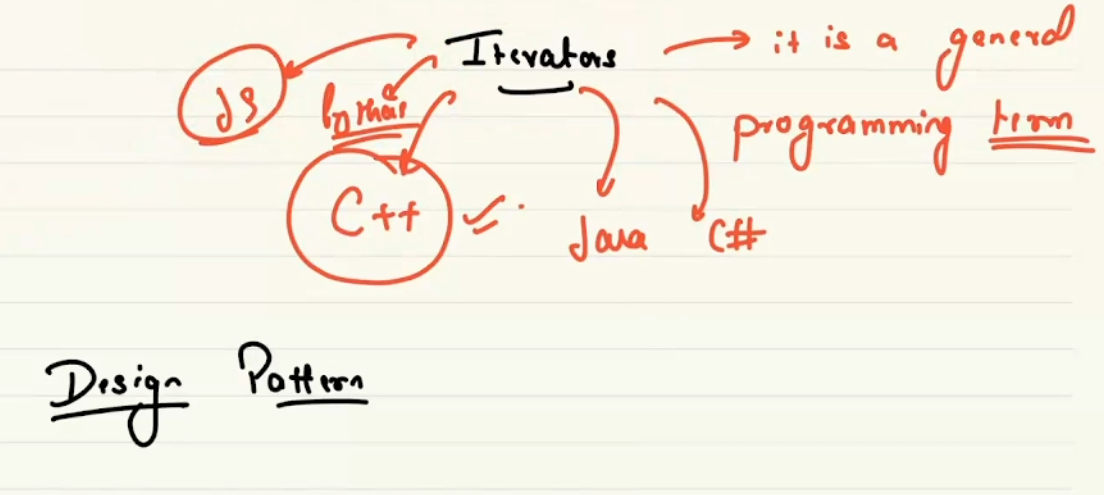 Iterators → it is a general
programming term
JS
Python
C++
Java
C#
Design Pattern